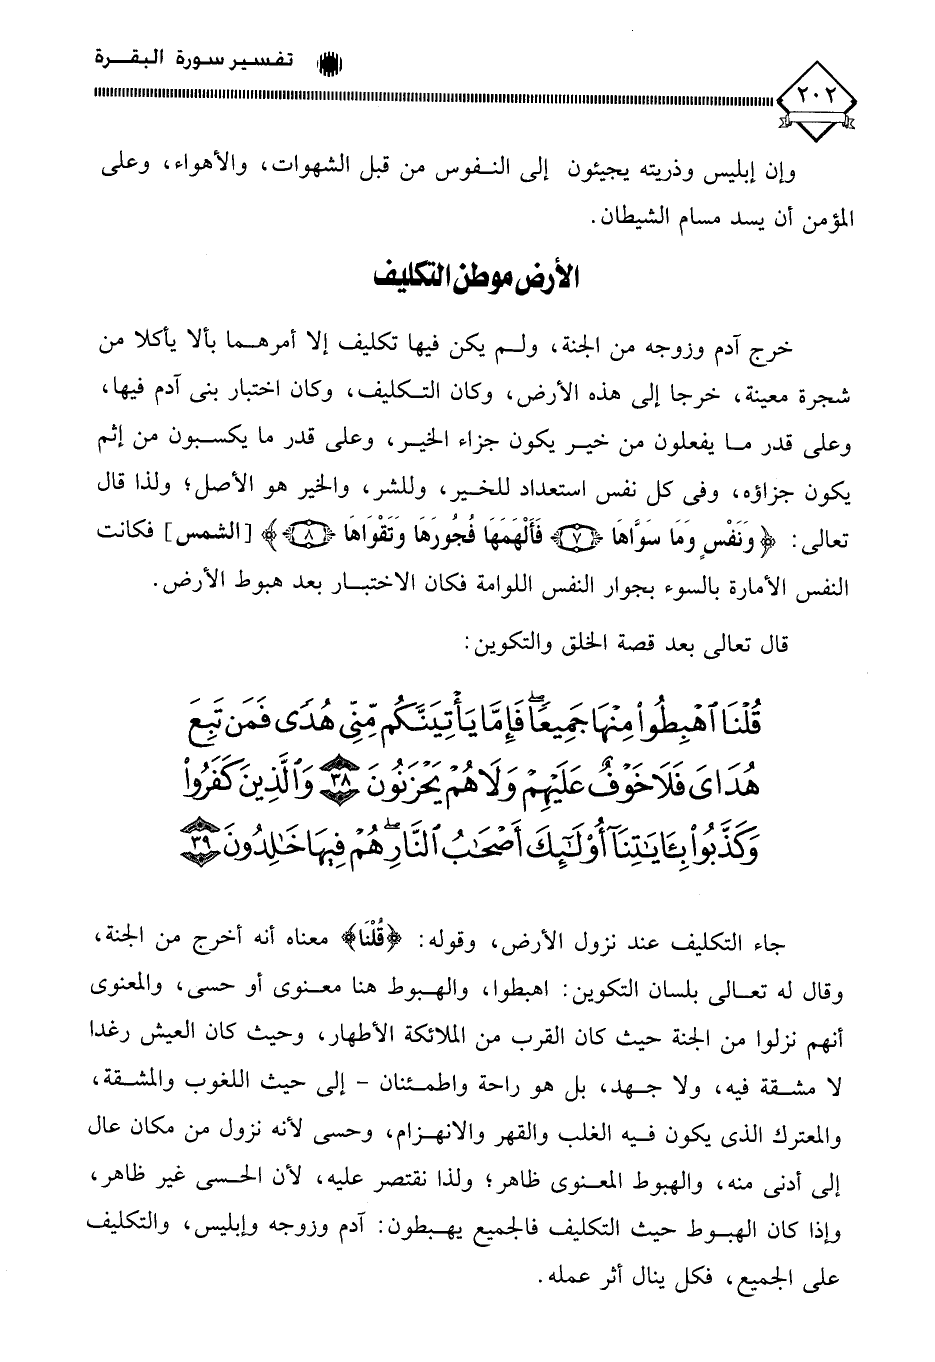 تفسير سورة البقرة
٢٠٢
وإن إبليس وذريته يجيئون إلى النفوس من قبل الشهوات، والأهواء، وعلى
المؤمن أن يسد مسام الشيطان.
الأرض موطن التكليف
خرج آدم وزوجه من الجنة، ولم يكن فيها تكليف إلا أمرهما بألا يأكلا من
شجرة معينة، خرجا إلى هذه الأرض، وكان التكليف، وكان اختبار بنى آدم فيها،
وعلى قدر ما يفعلون من خير يكون جزاء الخير، وعلى قدر ما يكسبون من إثم
يكون جزاؤه، وفى كل نفس استعداد للخير، وللشر، والخير هو الأصل؛ ولذا قال
تعالى: ﴿وَنَفْسٍ وَمَا سَوَّاهَا ﴿٧﴾ فَأَلْهَمَهَا فُجُورَهَا وَتَقْوَاهَا ﴿٨﴾﴾ [الشمس] فكانت
النفس الأمارة بالسوء بجوار النفس اللوامة فكان الاختبار بعد هبوط الأرض.
قال تعالى بعد قصة الخلق والتكوين:
قُلْنَا ٱهْبِطُوا۟ مِنْهَا جَمِيعًا ۖ فَإِمَّا يَأْتِيَنَّكُم مِّنِّى هُدًى فَمَن تَبِعَ
هُدَاىَ فَلَا خَوْفٌ عَلَيْهِمْ وَلَا هُمْ يَحْزَنُونَ ٣٨ وَٱلَّذِينَ كَفَرُوا۟
وَكَذَّبُوا۟ بِـَٔايَـٰتِنَآ أُو۟لَـٰٓئِكَ أَصْحَـٰبُ ٱلنَّارِ ۖ هُمْ فِيهَا خَـٰلِدُونَ ٣٩
جاء التكليف عند نزول الأرض، وقوله: ﴿قُلْنَا﴾ معناه أنه أخرج من الجنة،
وقال له تعالى بلسان التكوين: اهبطوا، والهبوط هنا معنوى أو حسى، والمعنوى
أنهم نزلوا من الجنة حيث كان القرب من الملائكة الأطهار، وحيث كان العيش رغدا
لا مشقة فيه، ولا جهد، بل هو راحة واطمئنان - إلى حيث اللغوب والمشقة،
والمعترك الذى يكون فيه الغلب والقهر والانهزام، وحسى لأنه نزول من مكان عال
إلى أدنى منه، والهبوط المعنوى ظاهر؛ ولذا نقتصر عليه، لأن الحسى غير ظاهر،
وإذا كان الهبوط حيث التكليف فالجميع يهبطون: آدم وزوجه وإبليس، والتكليف
على الجميع، فكل ينال أثر عمله.